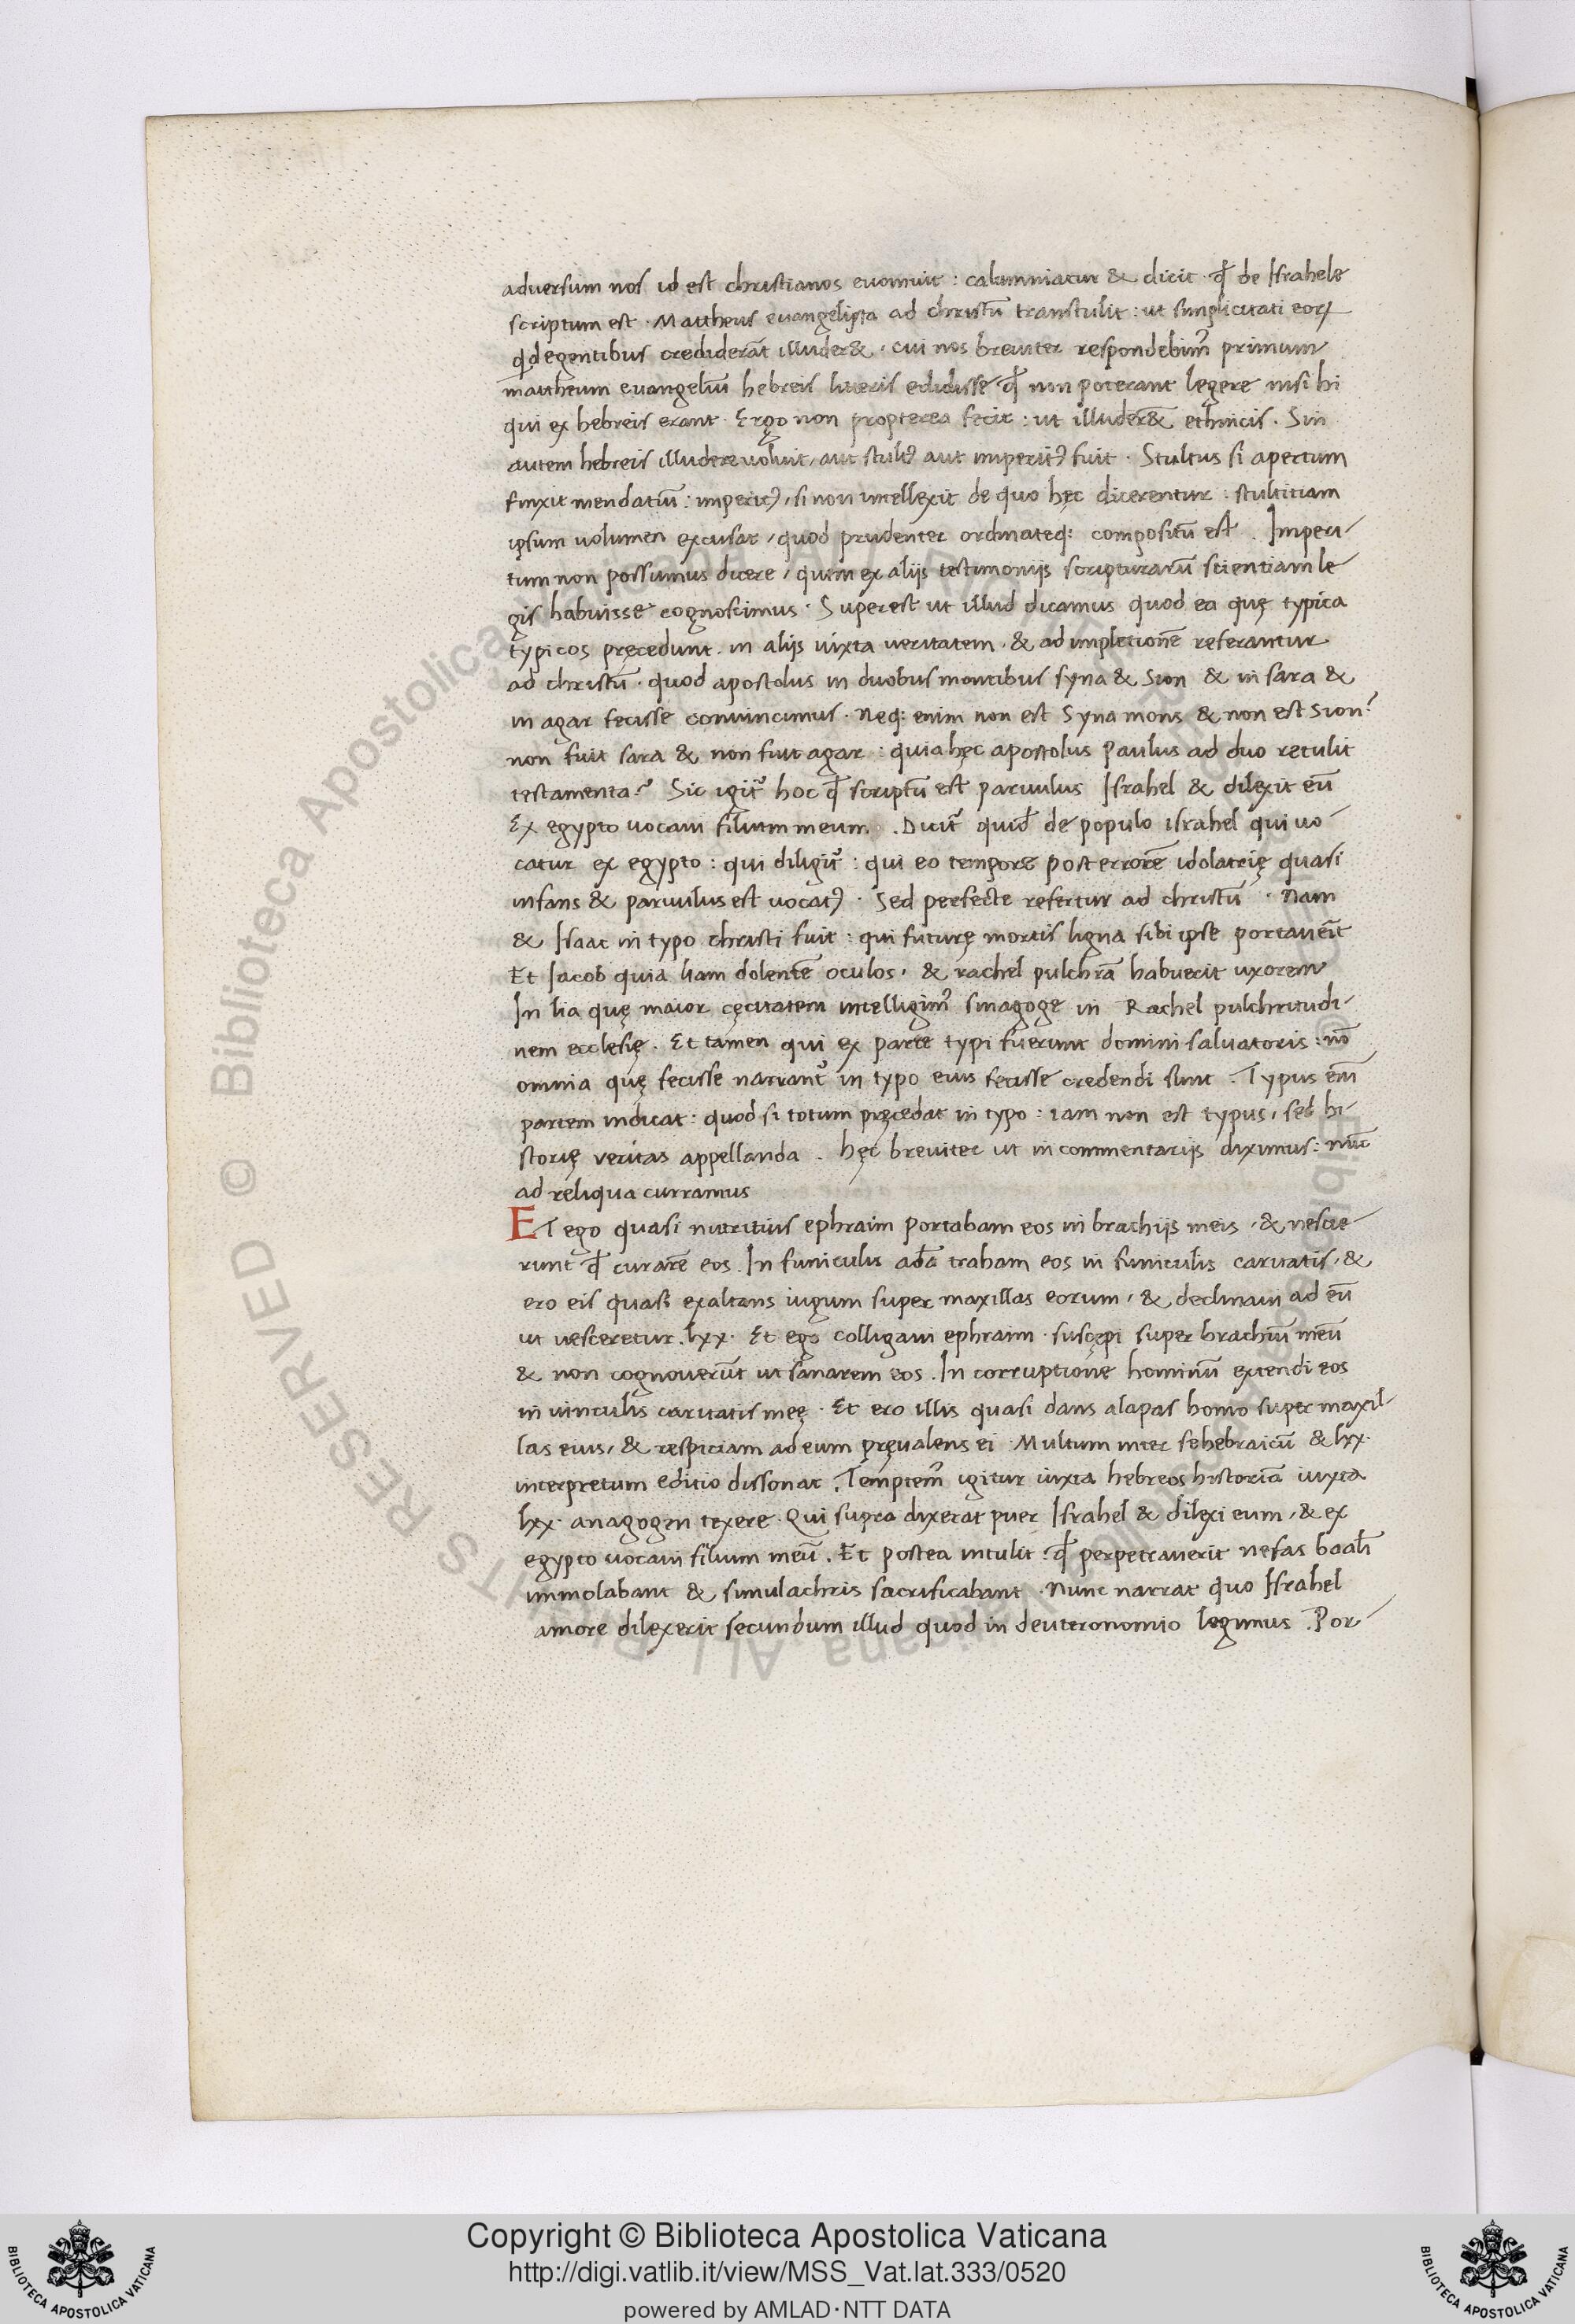 adversum nos id est christianos evomuit : calumniatur & dicit · qđ de Israhele
scriptum est · Mattheus evangelista ad christū transtulit : ut simplicitati eoꝝ
qi de gentibus crediderāt illuder& · cui nos breviter respondebim᷒ primum
mattheum evangeliū hebreis litteris edidisse qđ non poterant legere nisi hi
qui ex hebreis erant · Ergo non propterea fecit : ut illuder& ethnicis . Sin
autem hebreis illudere voluit, aut stult᷒ aut imperit᷒ fuit · Stultus si apertum
finxit mendatiū : imperit᷒, si non intellexit de quo hęc dicerentur : stultitiam
ipsum volumen excusat, quod prudenter ordinateq: compositū est . Imperi-
tum non possumus dicere, quim ex alijs testimonijs scripturarū scientiam le
gis habuisse cognoscimus · Superest ut illud dicamus quod ea quę typica
typicos pręcedunt . in alijs iuxta veritatem · & ad impletionē referantur
ad christū · quod apostolus in duobus montibus syna & sion & in sara &
in agar fecisse convincimus · neq: enim non est Syna mons & non est sion?
non fuit sara & non fuit agar : quia hęc apostolus paulus ad duo retulit
testamenta? Sic igit᷑ hoc qđ scriptū est parvulus Israhel & dilexit eū
Ex egypto vocavi filium meum . Dicit᷑ quid de populo israhel qui vo
catur ex egypto : qui diligit᷑ : qui eo tempore post errorē idolatrię quasi
infans & parvulus est vocat᷒ · Sed perfecte refertur ad christū · nam
& Isaac in typo christi fuit : qui futurę mortis ligna sibi ipse portavēit
Et Iacob quia liam dolentē oculos · & rachel pulchrā habuerit uxorem
In lia quę maior cęcitatem intelligim᷒ sinagoge in Rachel pulchritudi-
nem ecclesię . Et tamen qui ex parte typi fuerunt domini salvatoris : nō
omnia quę fecisse narrant᷑ in typo eius fecisse credendi sunt . Typus em̄
partem indicat : quod si totum pręcedat in typo : iam non est typus, sed hi-
storię veritas appellanda . hęc breviter ut in commentarijs diximus : nūc
ad reliqua curramus
ET ego quasi nutritius ephraim portabam eos in brachijs meis · & nescie-
runt qđ curarē eos . In funiculis adā traham eos in funiculis caritatis · &
ero eis quasi exaltans iugum super maxillas eorum · & declinavi ad eū
ut vesceretur . lxx · Et ego colligavi ephraim · suscępi super brachiū meū
& non cognoverūt ut sanarem eos . In corruptione hominū extendi eos
in vinculis caritatis meę · Et ero illis quasi dans alapas homo super maxil-
las eius, & respiciam ad eum pręvalens ei · Multum inter se hebraicū & lxx·
interpretum editio dissonat . Temptem᷒ igitur iuxta hebreos historiā iuxta
lxx · anagogen texere · Qui supra dixerat puer Israhel & dilexi eum, & ex
egypto vocavi filium meū . Et postea intulit : qđ perpetraverit nefas baalī
immolabant & simulachris sacrificabant · Nunc narrat quo Israhel
amore dilexerit secundum illud quod in deuteronomio legimus . Por-
Copyright © Biblioteca Apostolica Vaticana
http://digi.vatlib.it/view/MSS_Vat.lat.333/0520
powered by AMLAD·NTT DATA